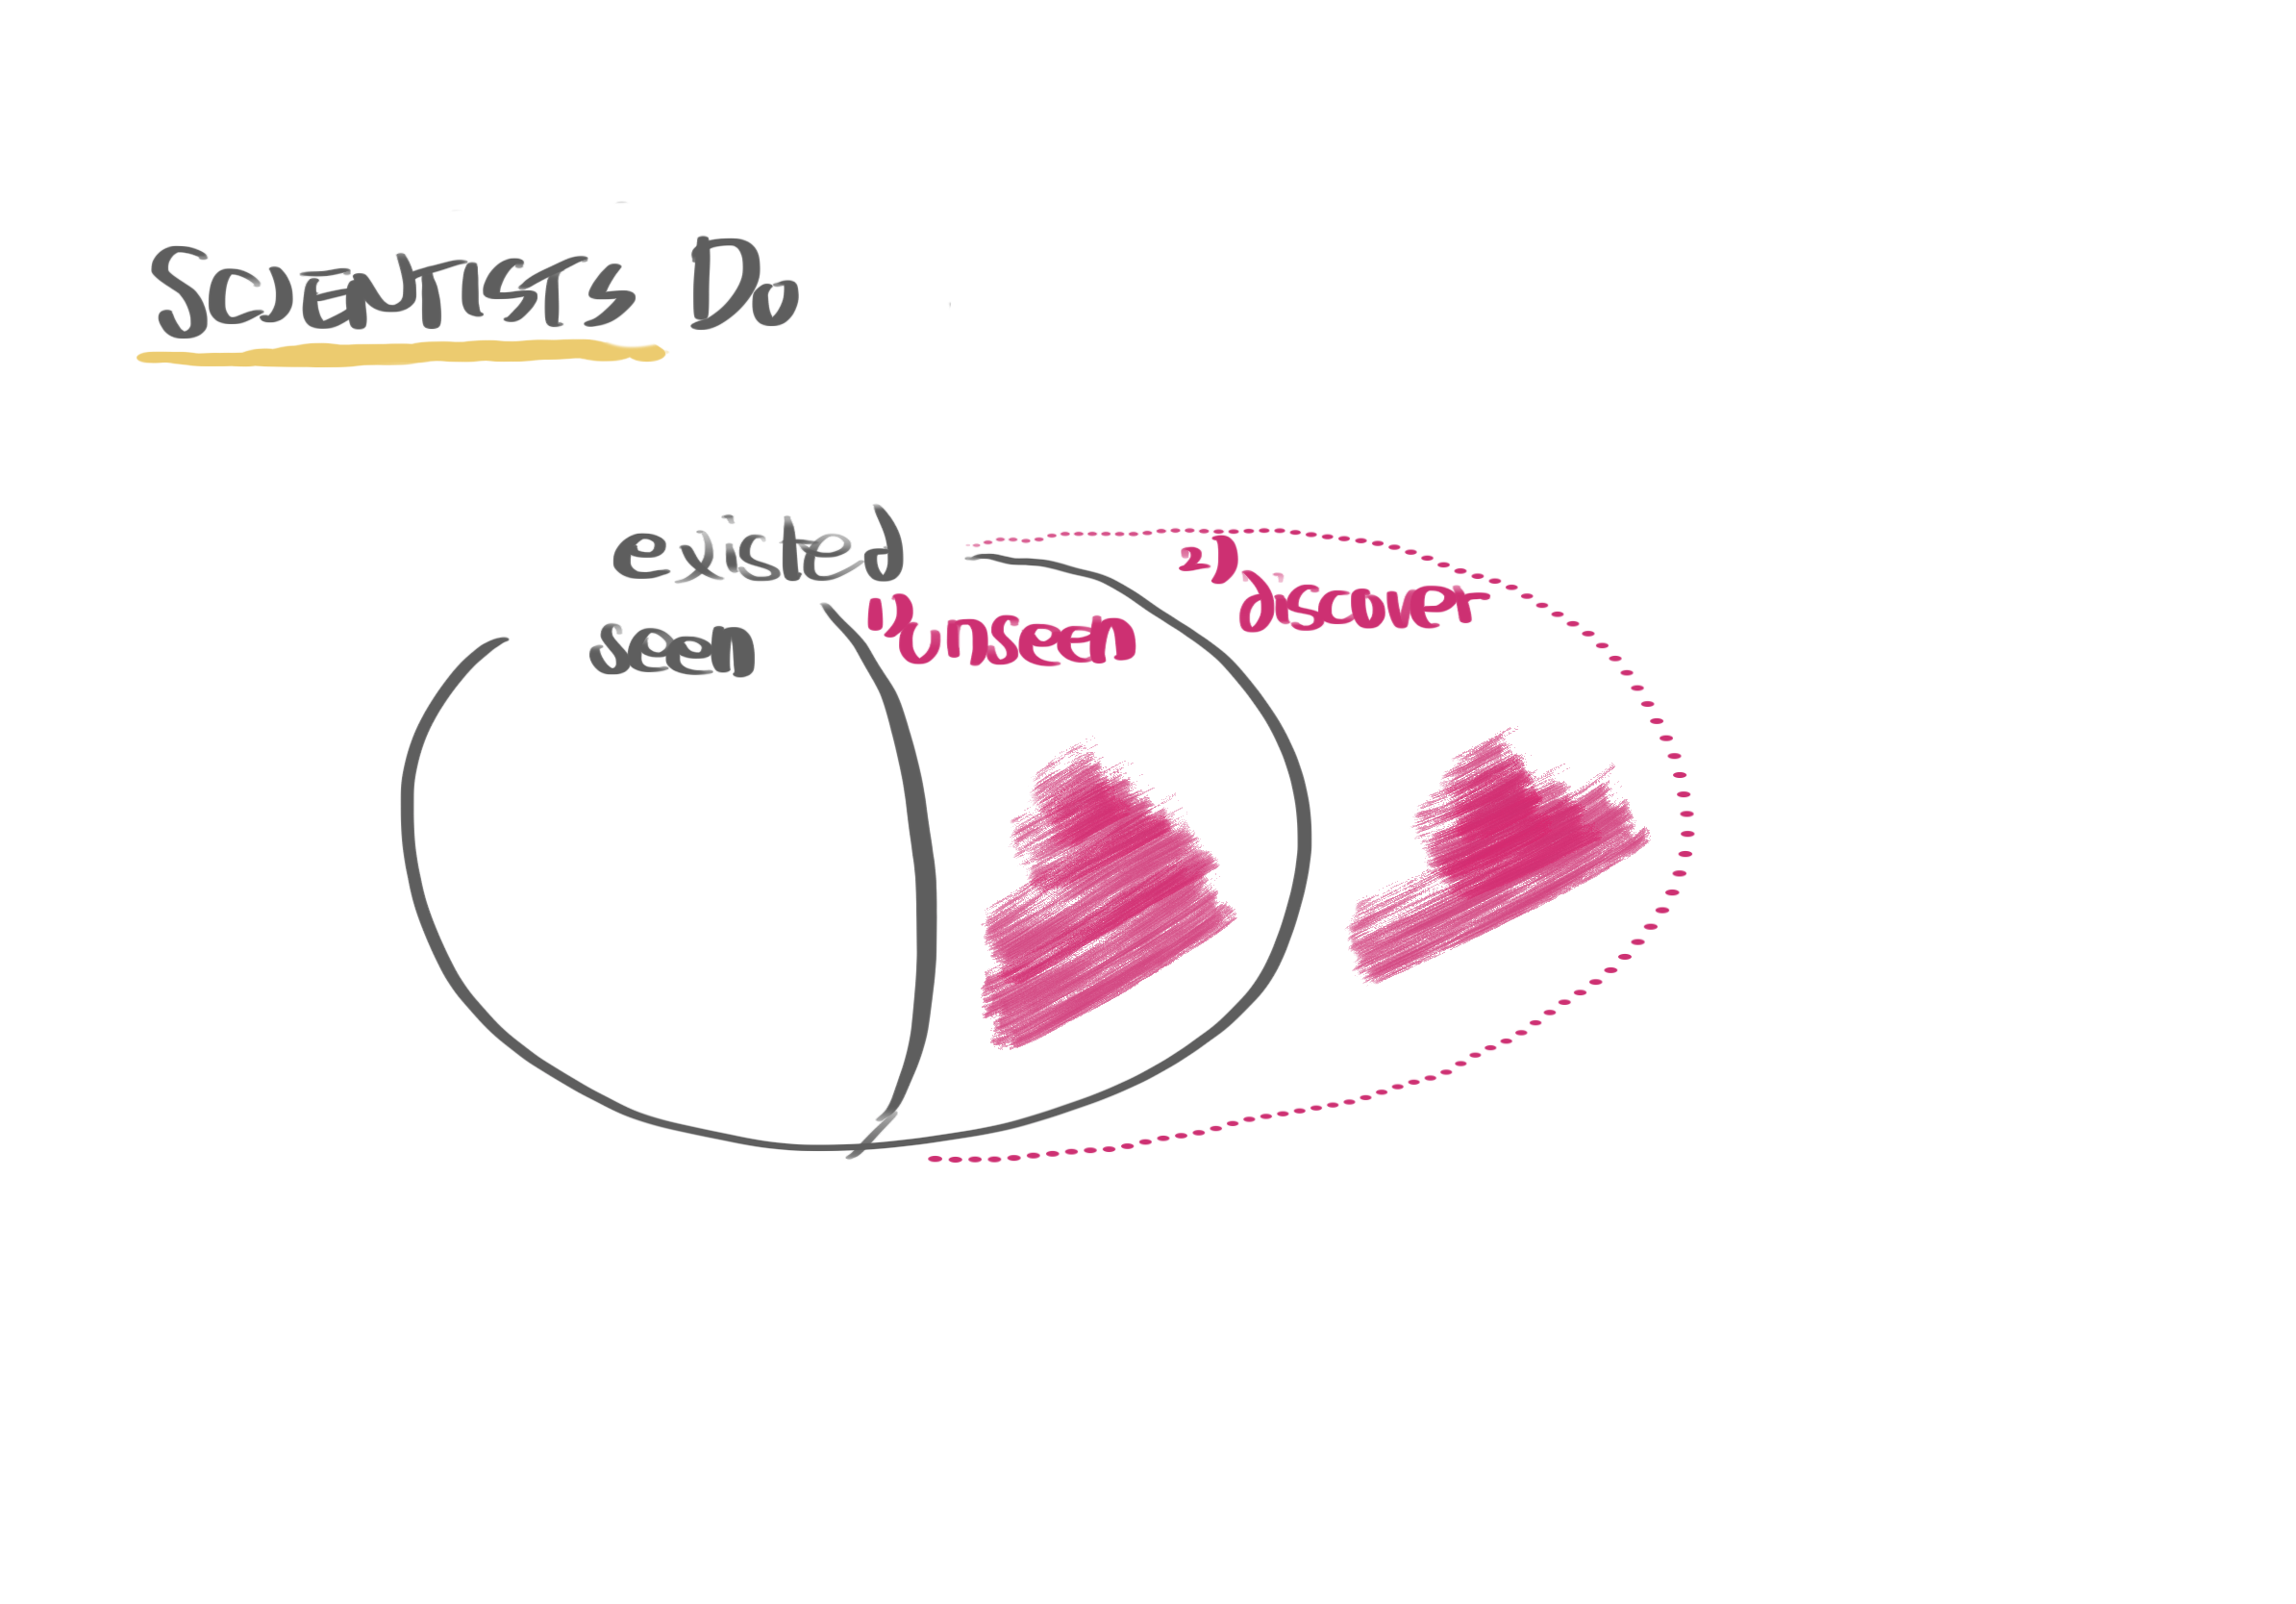 SCIENTISTS DO
existed
seen
1) unseen
2) discover